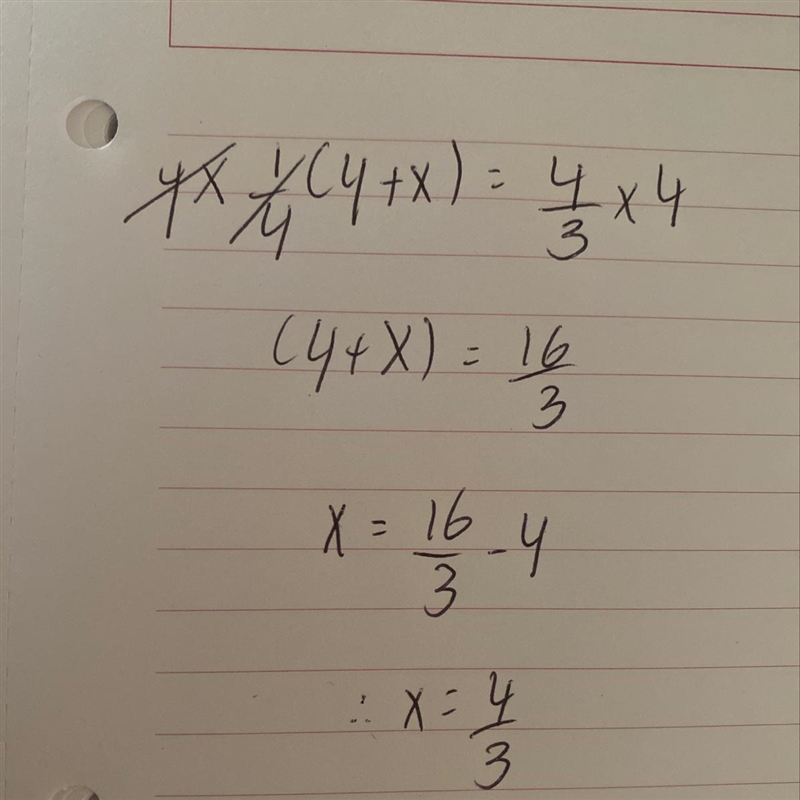 4 × 1/4 (4 + x) = 4/3 × 4
(4 + x) = 16/3
x = 16/3 - 4
∴ x = 4/3